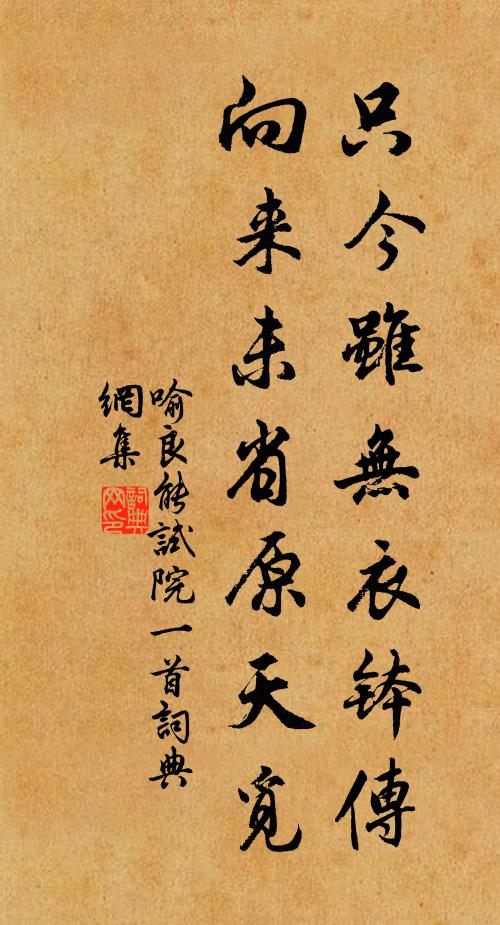 只今雖無衣鉢傳
向来未省原天覓
喻良能試院一首詞典
網集
詞典
网印